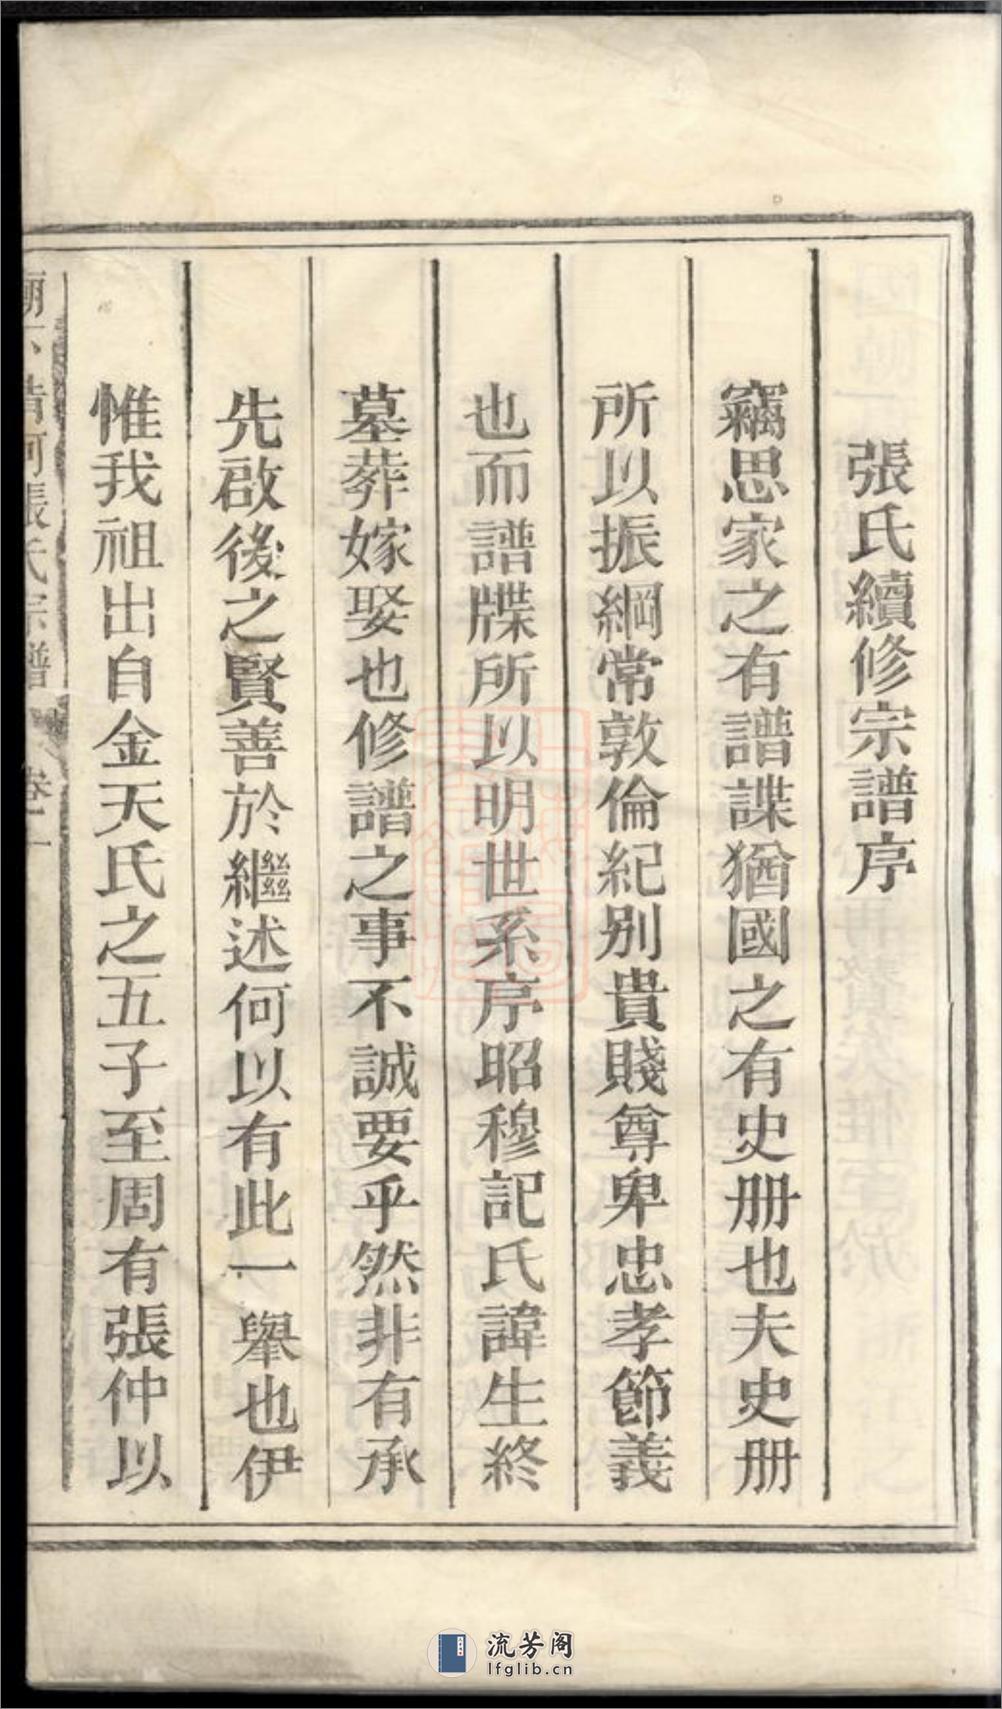 張氏續修宗譜序
竊思家之有譜諜猶國之有史册也夫史册
所以振綱常敦倫紀別貴賤尊卑忠孝節義
也而譜牒所以明世系序昭穆記氏諱生終
墓葬嫁娶也修譜之事不誠要乎然非有承
先啟後之賢善於繼述何以有此一舉也伊
惟我祖出自金天氏之五子至周有張仲以
清河張氏宗譜
卷一
流芳阁
lfglib.cn